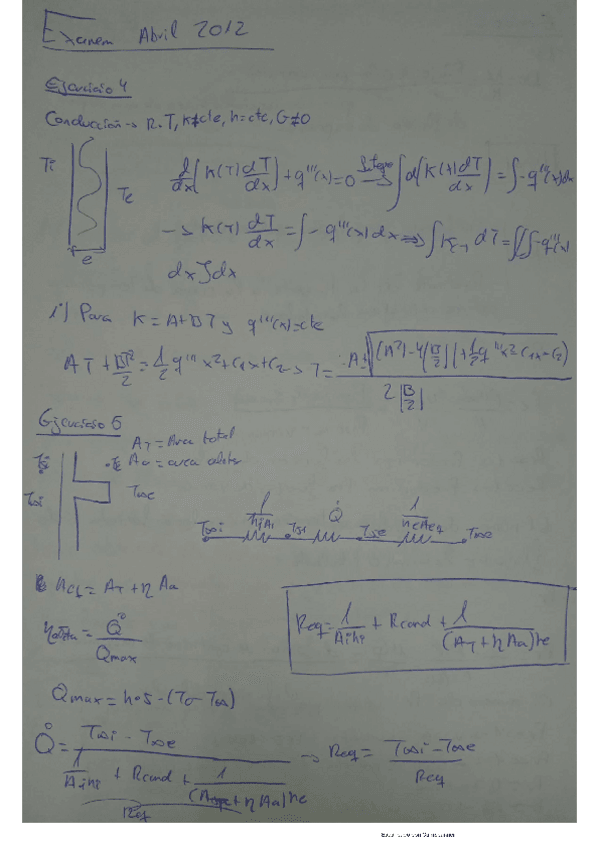 Examen Abril 2012
Ejercicio 4
Conducción → R.T, K≠cte, h=cte, G≠0
Ti
Te
e
d/dx (K(T) dT/dx) + q'''(x) = 0 → ∫ d(K(T) dT/dx) = ∫ -q'''(x) dx
→ K(T) dT/dx = ∫ -q'''(x) dx ⇒
dx] dx
i) Para K = A+BT y q'''(x)=cte
AT + BT²/2 = 1/2 q''' x² + C1x + C2 → T =
2 [B/2]
Ejercicio 5
AT = Area total
Aa = area aleta
T∞i
T∞e
T∞i 1/hiAi Tsi Q̇ Tse 1/heAeq T∞e
= AT + η Aa
= Q̇/Qmax
Req = 1/Aihi + Rcond + 1/(AT + η Aa)he
Qmax = h·s·(To - T∞)
Q̇ = T∞i - T∞e
1/Aihi + Rcond + 1/( + η Aa)he
Req
→ Req = T∞i - T∞e/Req